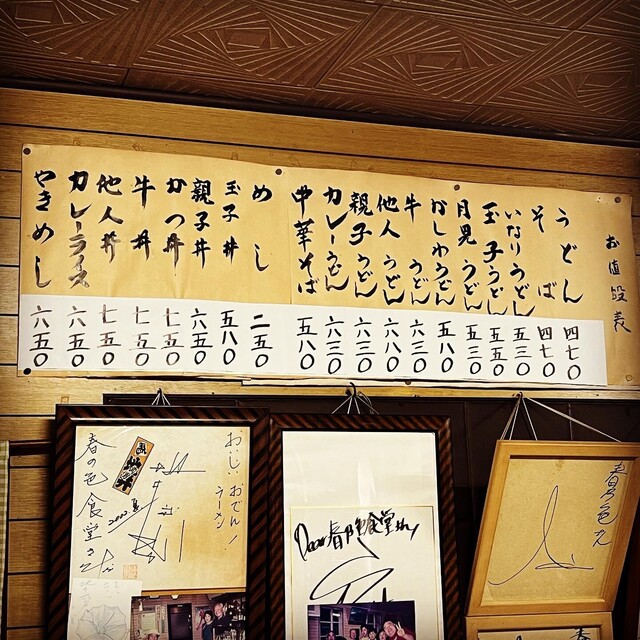 お値段表
うどん 四七〇
そば 四七〇
いなりうどん 五三〇
玉子うどん 五五〇
月見うどん 五三〇
かしわうどん 五八〇
牛うどん 六三〇
他人うどん 六八〇
親子うどん 六三〇
カレーうどん 六三〇
中華そば 五八〇
めし 二五〇
玉子丼 五八〇
親子丼 六五〇
かつ丼 七五〇
牛丼 七五〇
他人丼 七五〇
カレーライス 六五〇
やきめし 六五〇
おいしいおでん！
ラーメン
春の色食堂さん
Dear 春乃色食堂さん
春乃色さん
春